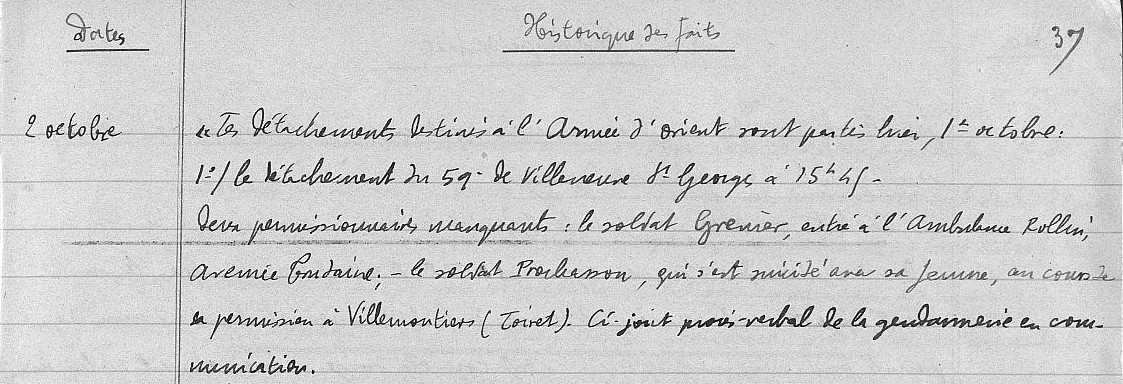 Dates
Historique des faits
37
2 octobre
« Les détachements destinés à l'Armée d'orient sont partis hier, 1er octobre :
1°/ le détachement du 59e de Villeneuve St Georges à 15h45 -
Deux permissionnaires manquants : le soldat Grenier, entré à l'Ambulance Rollin,
avenue Trudaine ; - le soldat Prochasson, qui s'est suicidé avec sa femme, au cours de
sa permission à Villemoutiers (Loiret). Ci-joint procès-verbal de la gendarmerie en com-
munication.